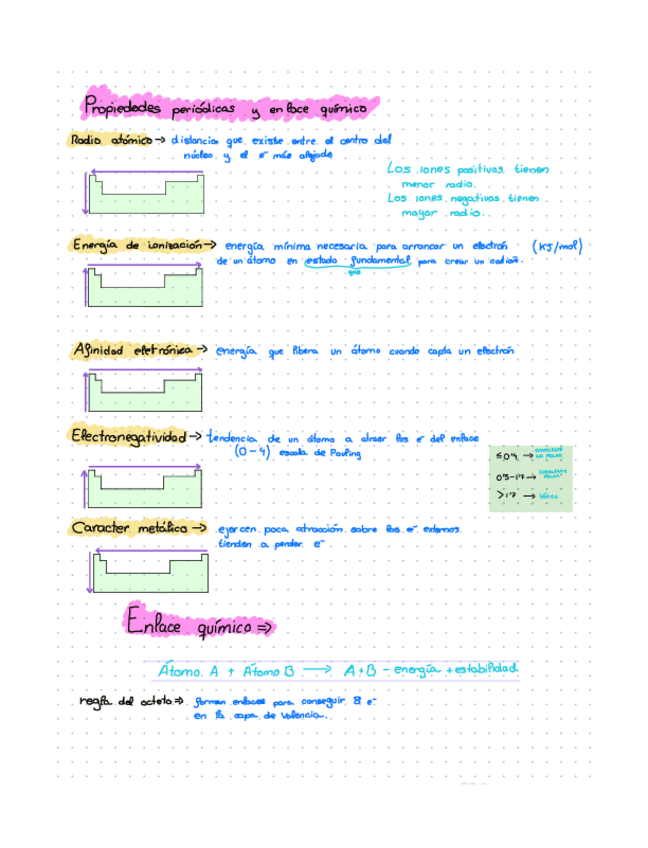 Propiedades periódicas y enlace químico
Radio atómico → distancia que existe entre el centro del
núcleo y el e⁻ más alejado
Los iones positivos tienen
menor radio.
Los iones negativos tienen
mayor radio.
Energía de ionización → energía mínima necesaria para arrancar un electrón (KJ/mol)
de un átomo en estado fundamental para crear un catión.
gas
Afinidad eletrónica → energía que libera un átomo cuando capta un electrón
Electronegatividad → tendencia de un átomo a atraer los e⁻ del enlace
(0-4) escala de Pauling
≤0'4 → COVALENTE NO POLAR
0'5-1'7 → COVALENTE POLAR
>1'7 → iónico
Caracter metálico → ejercen poca atracción sobre los e⁻ externos.
tienden a perder e⁻
Enlace químico ⇒
Átomo A + Átomo B → A+B - energía + estabilidad
regla del octeto ⇒ forman enlaces para conseguir 8 e⁻
en la capa de Valencia.